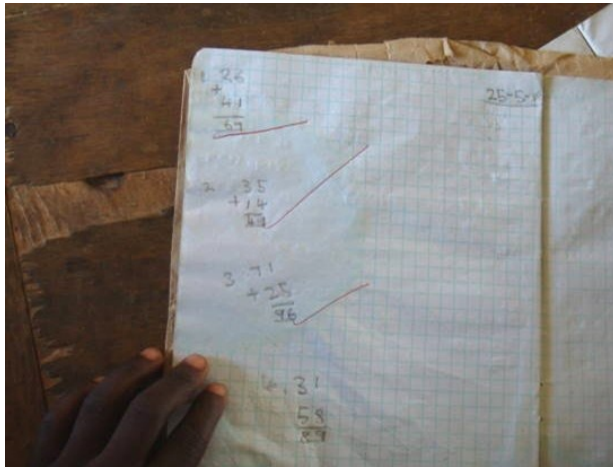 25-5-
1. 26
+
41
67
2 35
+14
49
3. 71
+25
96
4. 31
58
89